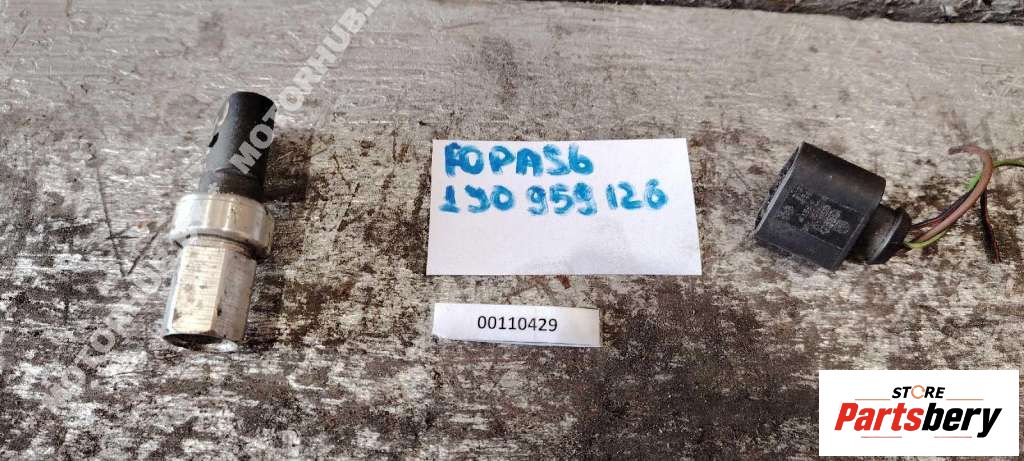 MOTORHUB
FOPAS6
1J0 959 126
00110429
STORE
Partsbery